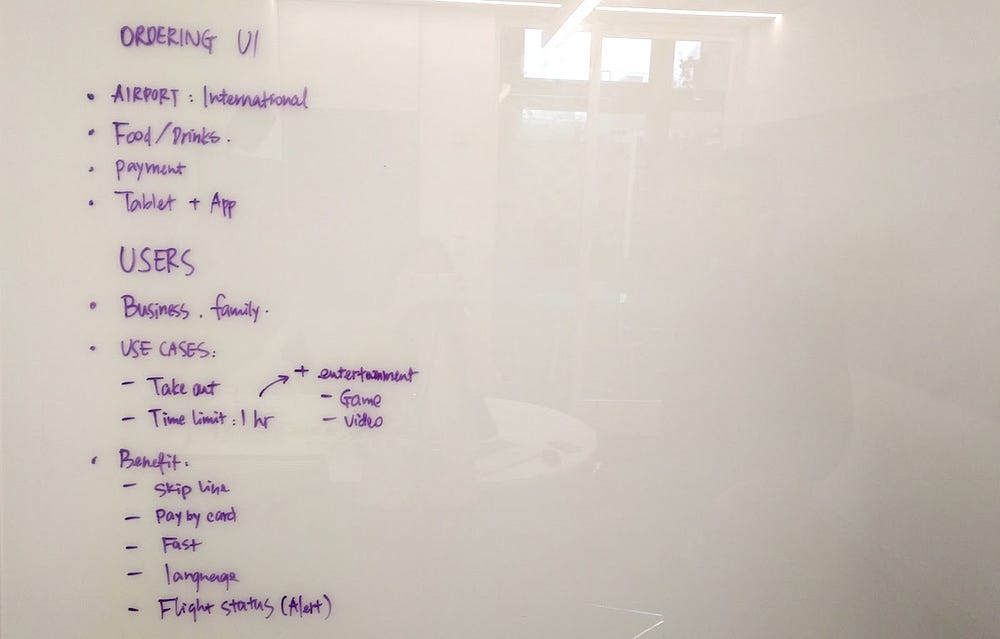 ORDERING UI
• AIRPORT : International
• Food/Drinks.
• payment
• Tablet + App
USERS
• Business . family.
• USE CASES:
– Take out
– Time limit : 1 hr
+ entertainment
– Game
– video
• Benefit.
– skip line
– Pay by card
– Fast
– language
– Flight status (Alert)